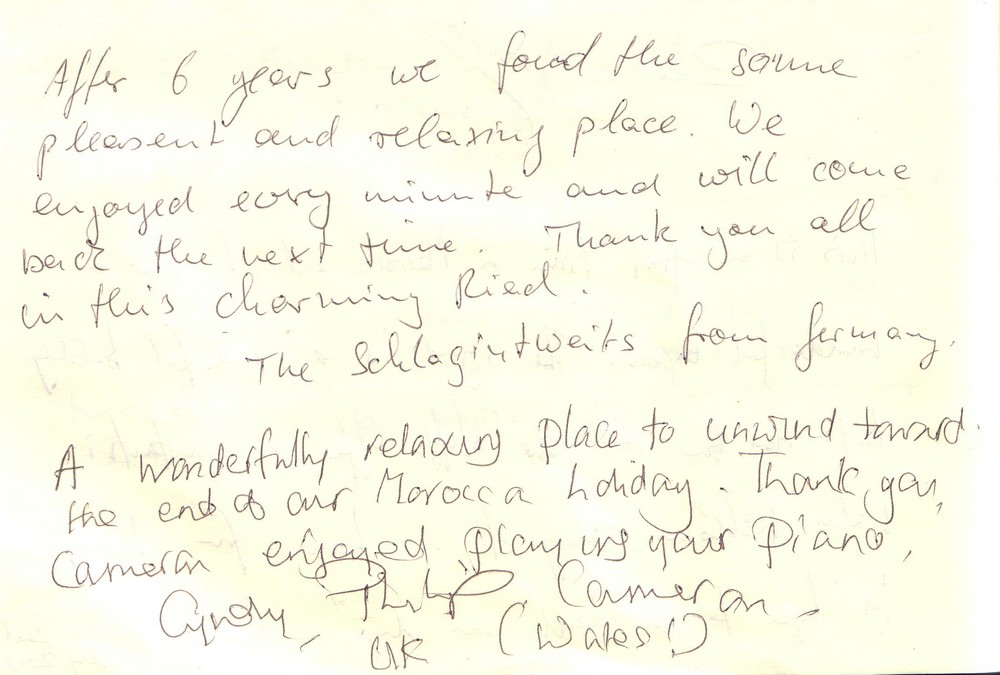 After 6 years we found the same
pleasent and relaxing place. We
enjoyed every minute and will come
back the next time. Thank you all
in this charming Riad.
The Schlagintweits from Germany.
A wonderfully relaxing place to unwind toward
the end of our Morocca holiday. Thank you,
Cameron enjoyed playing your piano,
Cyndy, Philip, Cameron -
UK (Wales!)